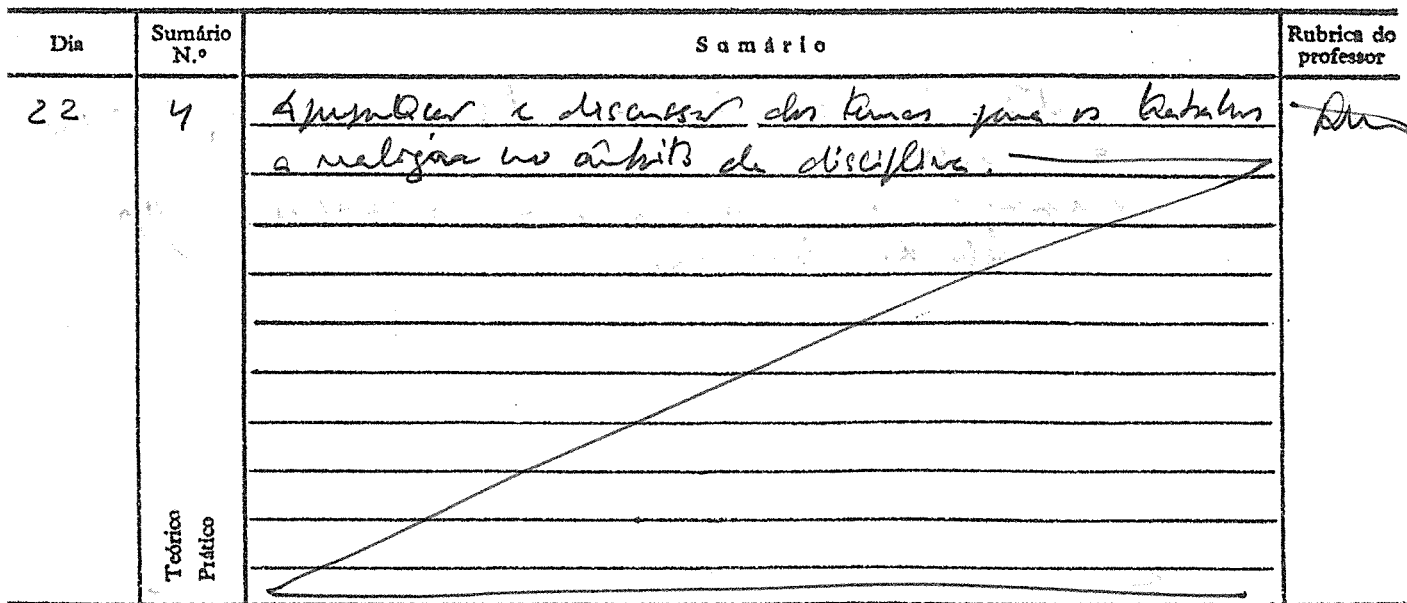 Dia
Sumário N.º
Sumário
Rubrica do professor
22
4
e discussão dos temas para os trabalhos
a realizar no âmbito da disciplina.
Teórico
Prático